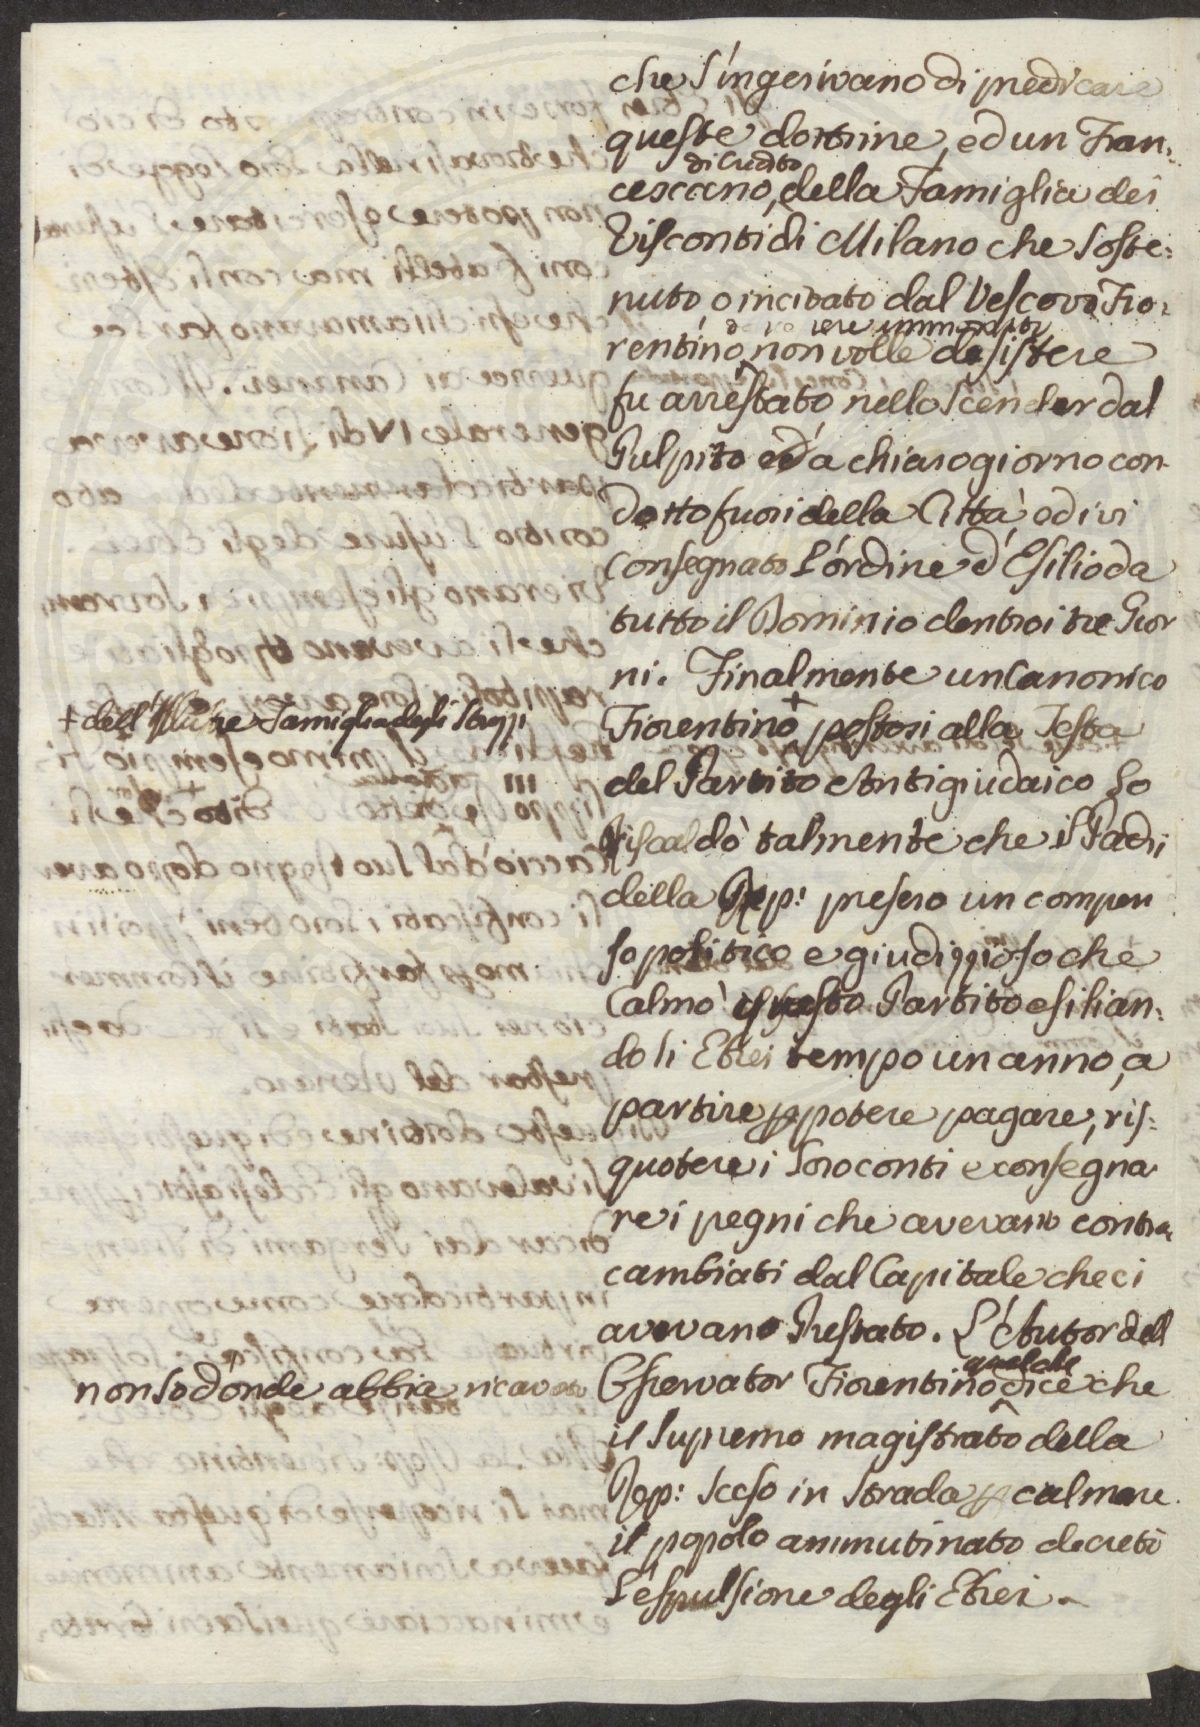 che s'ingerivano di predicare
queste dottrine, ed un Fran:
di Credito
cescano, della Famiglia dei
Visconti di Milano che soste:
nuto, o incitato dal Vescovo Fio:
rentino, non volle desistere
fu arrestato nello scender dal
Pulpito ed a chiaro giorno con
dotto fuori della Città ed ivi
consegnato l'ordine d'Esilio da
tutto il Dominio dentro i tre Gior
ni. Finalmente un Canonico
+ dell'Illustre Famiglia degli Strozzi
Fiorentino + postosi alla Testa
del Partito Antigiudaico lo
Riscaldò talmente che i Padri
della Rep: presero un compen
so politico e giudizzioso che
Calmò questo Partito esilian:
do li Ebrei tempo un anno, a
partire p potere pagare, ris:
quotere i loro conti e consegna
re i pegni che avevano contra
cambiati dal Capitale che ci
avevano Prestato. L'Autor dell
Osservator Fiorentino dice che
non so d'onde abbia ricavato
il supremo magistrato della
Rep: sceso in strada p calmare
il popolo ammutinato decretò
l'espulsione degli Ebrei.